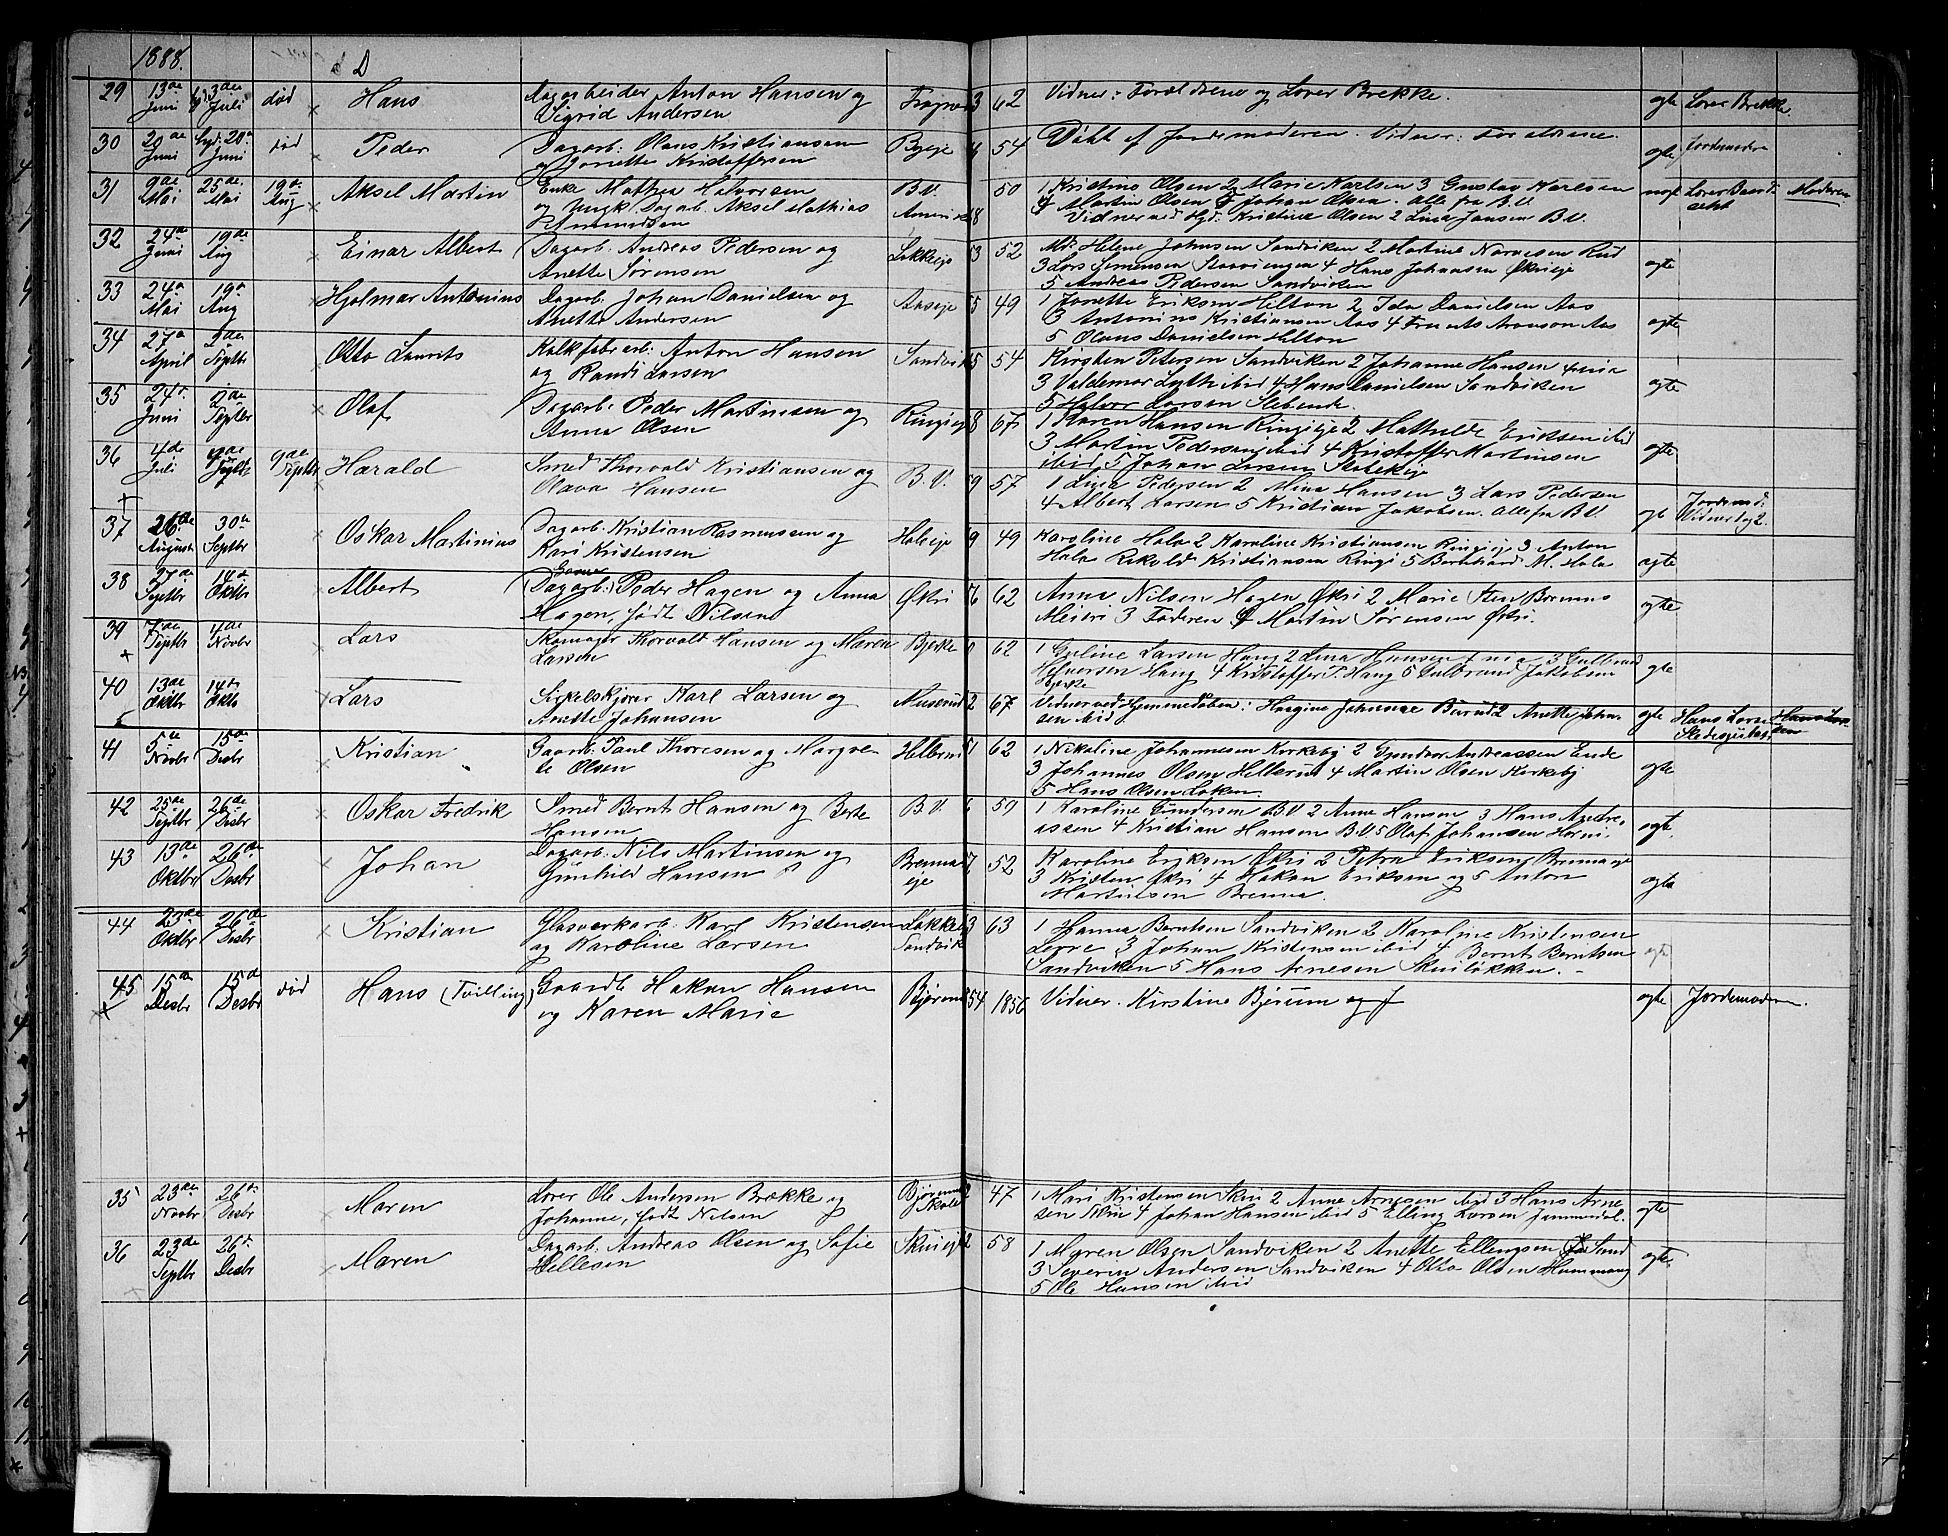 1888.
D
29 13de Juni 3die Juli død Hans Dagarbeider Anton Hansen og
Sigrid Andersen 3 62 Vidner: Forældrene og Lærer Brekke. ægte Lærer Brekke
30 20de Juni 20de Juni død Peder Dagarb: Olaus Kristiansen
og Kristoffersen Byeje 6 54 Døbt af Jordemoderen. Vidner: Forældrene. ægte Jordemoderen
31 9de Mai 25de Mai 19de Aug Aksel Martin Enke Mathea Halvorsen
og Ungk. Dagarb. Aksel Mathias
Ammundsen B.V. 8 50 1 Olsen 2 Marie Karlsen 3 Gustav Karlsen
4 Martin Olsen 5 Johan Olsen. Alle fra B.V.
Vidner ved Hjd: Kristine Olsen 2 Lina Jansen B.V. Moderen
32 24de Juni 19de Aug Einar Albert Dagarb. Andreas Pedersen og
Anette Sørensen Løkkeeje 3 52 Helene Johnsen Sandviken 2 Martine Rud
3 Lars 4 Hans Johansen Økrieje
5 Andreas Pedersen Sandviken ægte
33 24de Mai 19de Aug Hjalmar Antonius Dagarb. Johan Danielsen og
Anette Andersen Aaseje 5 49 1 Jonette Eriksen Hilton 2 Ida Danielsen Aas
3 Antonius Kristiansen Aas 4 Aronson Aas
5 Olaus Danielsen Hilton ægte
34 27de April Septbr Otto Laurits Kalkfabarb: Anton Hansen
og Randi Larsen Sandvik 5 54 Kirsten Petersen Sandviken 2 Johanne Hansen
3 Valdemar ibid 4 Hans Danielsen Sandviken
5 Halvor Larsen Slebende. ægte
35 24de Juni Septbr Olaf Dagarb. Peder Martinsen og
Anna Olsen Ringieje 8 67 1 Karen Hansen Ringieje 2 Mathilde Eriksen ibid
3 Martin Pedersen ibid 4 Kristoffer Martinsen
ibid 5 Johan Larsen ægte
36 4de Juli Septbr 9de Septbr Harald Smed Thorvald Kristiansen og
Olava Hansen B.V. 9 57 1 Lina Pedersen 2 Mina Hansen 3 Lars Pedersen
4 Albert Larsen 5 Kristian Jakobsen. Alle fra B.V.
37 26de August 30te Septbr Oskar Martinius Dagarb. Kristian Rasmussen og
Kari Kristensen Haleeje 9 49 Karoline Hala 2 Karoline Kristiansen Ringieje 3 Anton
Hala Kristiansen Ringi 5 Bernhard M. Hala ægte
38 27de Septbr 14de Oktbr Albert (Dagarb:) Peder Hagen og Anna
Hagen, født Nilsen Økri 6 62 Anna Nilsen Hagen Økri 2 Marie
Meieri 3 Faderen 4 Martin Sørensen Økri. ægte
39 7de Septbr 4de Novbr Lars Skomager Thorvald Hansen og Maren
Larsen Bjerke 62 1 Guline Larsen Haug 2 Lina Hansen 3 Gulbrand
Haug 4 Kristoffer P. Haug 5 Gulbrand Jakobsen
Bjerke ægte
40 13de Oktbr 14de Oktb Lars Karl Larsen og
Anette Johansen Muserud 2 67 Vidner ved Hjemmedåben: Hansine Johansen Bærud 2 Anette Johan-
sen ibid ægte
41 5te Novbr 15de Desbr Kristian Gaardb: Paul Thoresen og Margre-
te Olsen Hellerud 51 62 1 Nikoline Johannesen Kirkeby 2 Gunvor Andreassen Ende
3 Johannes Olsen Hellerud 4 Martin Olsen Kirkeby
5 Hans Olsen Løken. ægte
42 25de Septbr 26de Desbr Oskar Fredrik Smed Bernt Hansen og Berte
Hansen B.V. 6 59 1 Karoline Gundersen B.V 2 Anne Hansen 3 Hans Andre-
assen 4 Kristian Hansen B.V. 5 Olaf Johansen Horni. ægte.
43 13de Oktbr 26de Desbr Johan Dagarb. Nils Martinsen og
Gunhild Hansen Brenna
eje 7 52 Karoline Eriksen Økri 2 Petra Eriksen Brenna
3 Kristen Økri 4 Hakon Eriksen og 5 Anton
Martinsen Brenna. ægte
44 23de Oktbr 26de Desbr Kristian Glasverkarb. Karl Kristensen
og Karoline Larsen Løkke
Sandvik 3 63 1 Hanna Berntsen Sandviken 2 Karoline Kristensen
3 Johan Kristensen ibid 4 Bernt Berntsen
Sandviken 5 Hans Arnesen Skuiløkken. ægte
45 15de Desbr 15de Desbr død Hans (Tvilling) Gaardb Hakon Hansen
og Karen Marie Bjørum 54 1856 Vidner. Kirstine Bjørum og J ægte Jordemoderen.
35 23de Novbr 26de Desbr Maren Lærer Ole Andersen Brække og
Johanne, født Nilsen Bjørum
Skole 2 47 1 Mari Kristensen Skui 2 Anne Arnesen ibid 3 Hans Arne-
sen Skui 4 Johan Hansen ibid 5 Elling Larsen ægte
36 23de Septbr 26de Desbr Maren Dagarb: Andreas Olsen og Sofie
Hellesen Skuieje 2 58 1 Maren Olsen Sandviken 2 Anette Ellingsen
3 Severin Andersen Sandviken 4 Otto Olsen
5 Ole Hansen ibid ægte